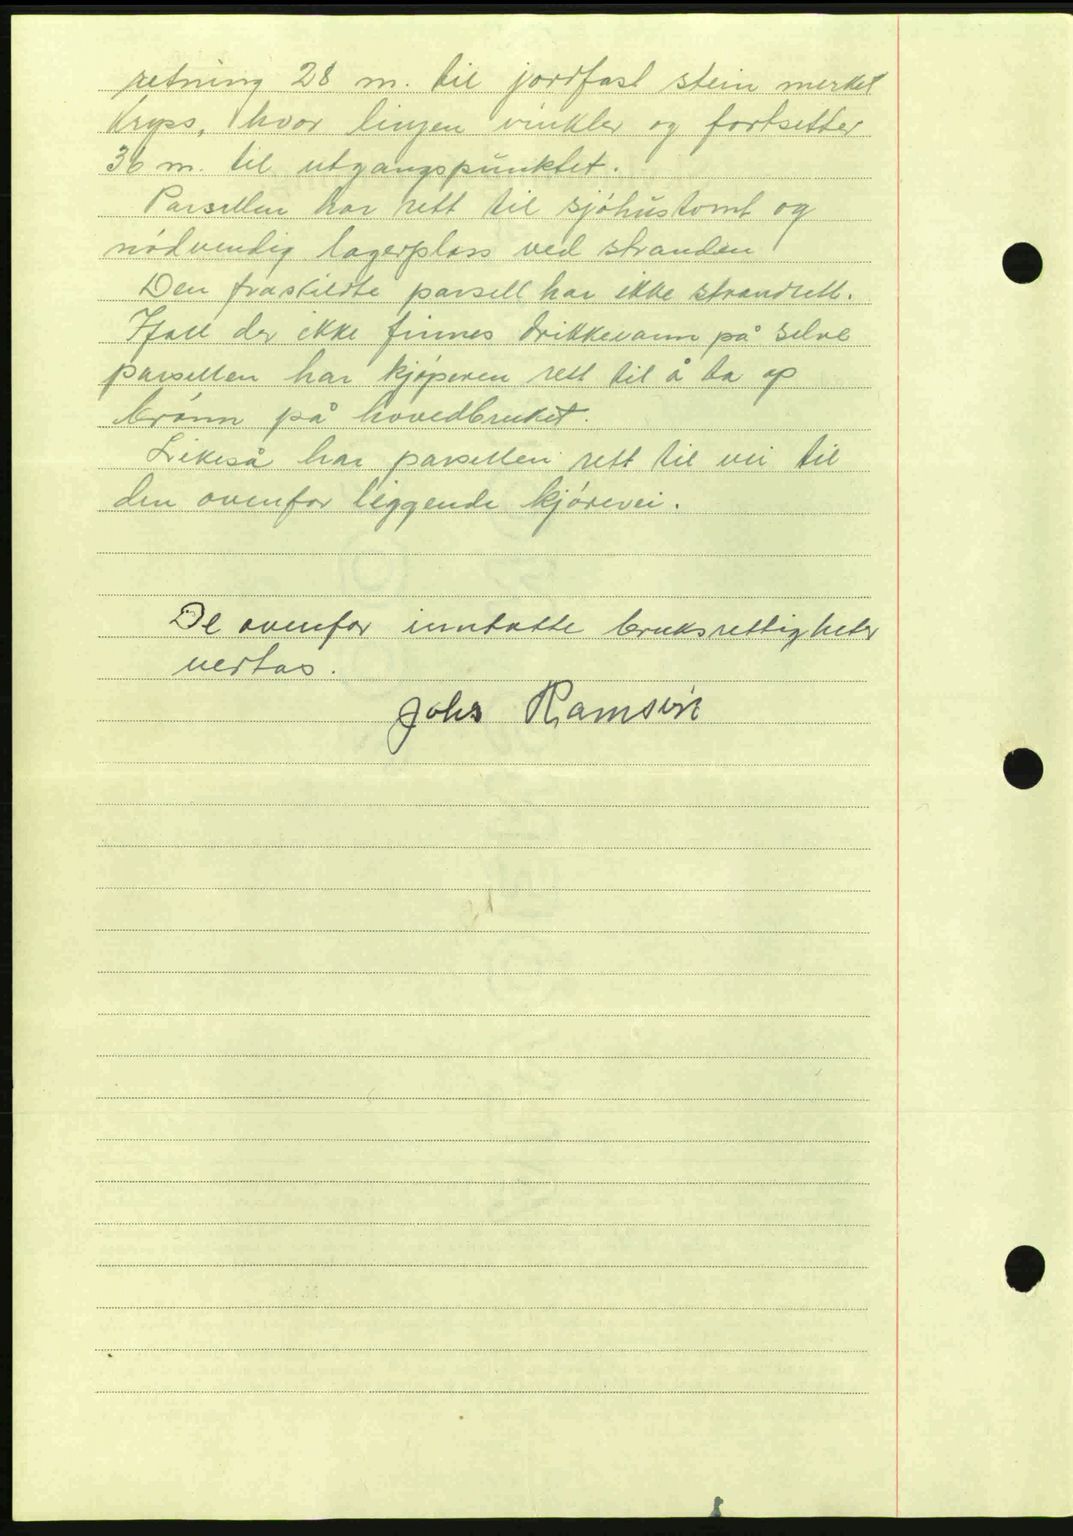 retning 28 m. til jordfast stein merket
kryss, hvor linjen vinkler og fortsetter
36 m. til utgangspunktet.
Parsellen har rett til sjøhustomt og
nødvendig lagerplass ved stranden
Den fraskildte parsell har ikke strandrett.
Ifall der ikke finnes drikkevann på selve
parsellen har kjøperen rett til å ta op
brønn på hovedbruket.
Likeså har parsellen rett til vei til
den ovenfor liggende kjørevei.
De ovenfor inntatte bruksrettigheter
vertas.
Johs Ramsvik